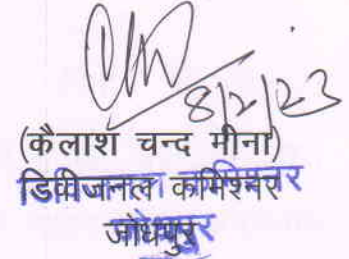 8/2/23
(कैलाश चन्द मीना)
डिविजनल कमिश्नर
जोधपुर